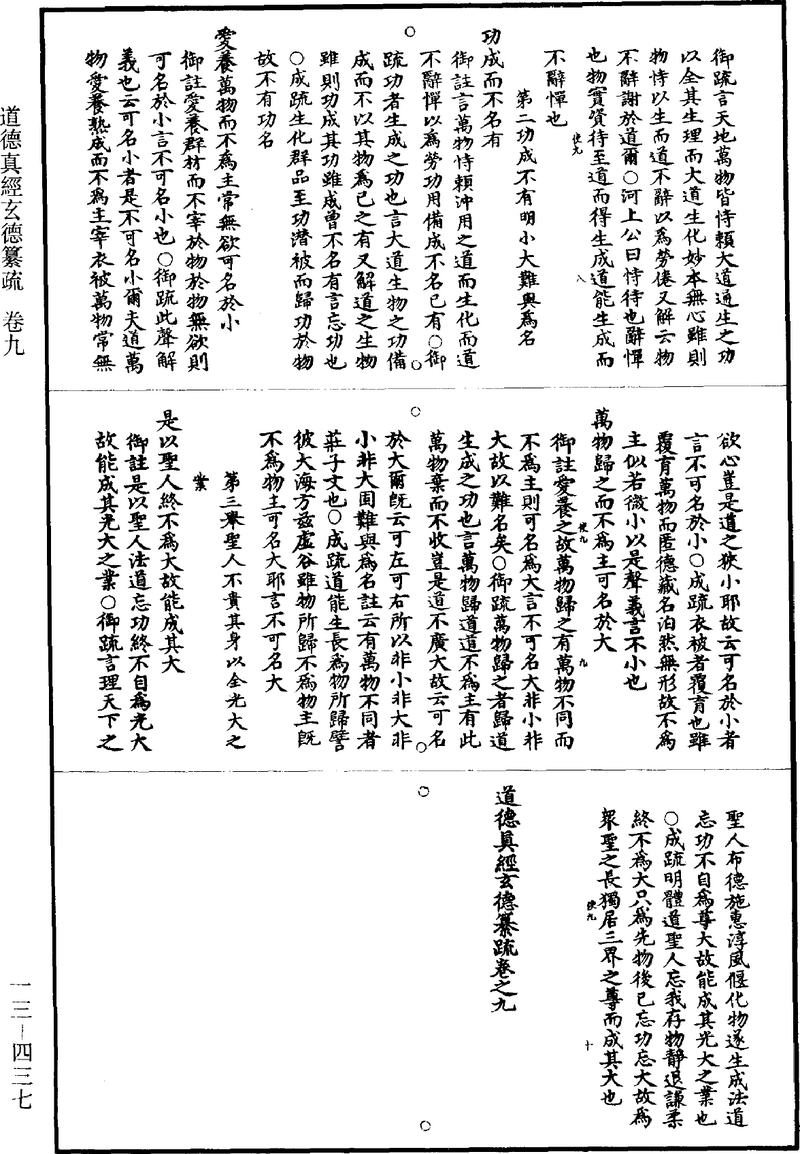 御疏言天地萬物皆恃賴大道通生之功
以全其生理而大道生化妙本無心雖則
物恃以生而道不辭以為勞倦又解云物
不辭謝於道爾○河上公曰恃待也辭憚
也物實資待至道而得生成道能生成而
不辭憚也
第二功成不有明小大難與為名
功成而不名有
御註言萬物恃賴沖用之道而生化而道
不辭憚以為勞功用備成不名已有○御
疏功者生成之功也言大道生物之功備
成而不以其物為已之有又解道之生物
雖則功成其功雖成曾不名有言忘功也
○成疏生化群品至功潛被而歸功於物
故不有功名
愛養萬物而不為主常無欲可名於小
御註愛養群材而不宰於物於物無欲則
可名於小言不可名小也○御疏此聲解
義也云可名小者是不可名小爾夫道萬
物愛養熟成而不為主宰衣被萬物常無
欲心豈是道之狹小耶故云可名於小者
言不可名於小○成疏衣被者覆育也雖
覆育萬物而匿德藏名泊然無形故不為
主似若微小以是聲義言不小也
萬物歸之而不為主可名於大
御註愛養之故萬物歸之有萬物不同而
不為主則可名為大言不可名大非小非
大故以難名矣○御疏萬物歸之者歸道
生成之功也言萬物歸道道不為主有此
萬物棄而不收豈是道不廣大故云可名
於大爾既云可左可右所以非小非大非
小非大固難與為名註云有萬物不同者
莊子文也○成疏道能生長為物所歸譬
彼大海方茲虛谷雖物所歸不為物主既
不為物主可名大耶言不可名大
第三舉聖人不貴其身以全光大之
業
是以聖人終不為大故能成其大
御註是以聖人法道忘功終不自為光大
故能成其光大之業○御疏言理天下之
聖人布德施惠淳風偃化物遂生成法道
忘功不自為尊大故能成其光大之業也
○成疏明體道聖人忘我存物靜退謙柔
終不為大只為先物後已忘功忘大故為
眾聖之長獨居三界之尊而成其大也
道德真經玄德纂疏卷之九
道德真經玄德纂疏 卷九
一三—四三七